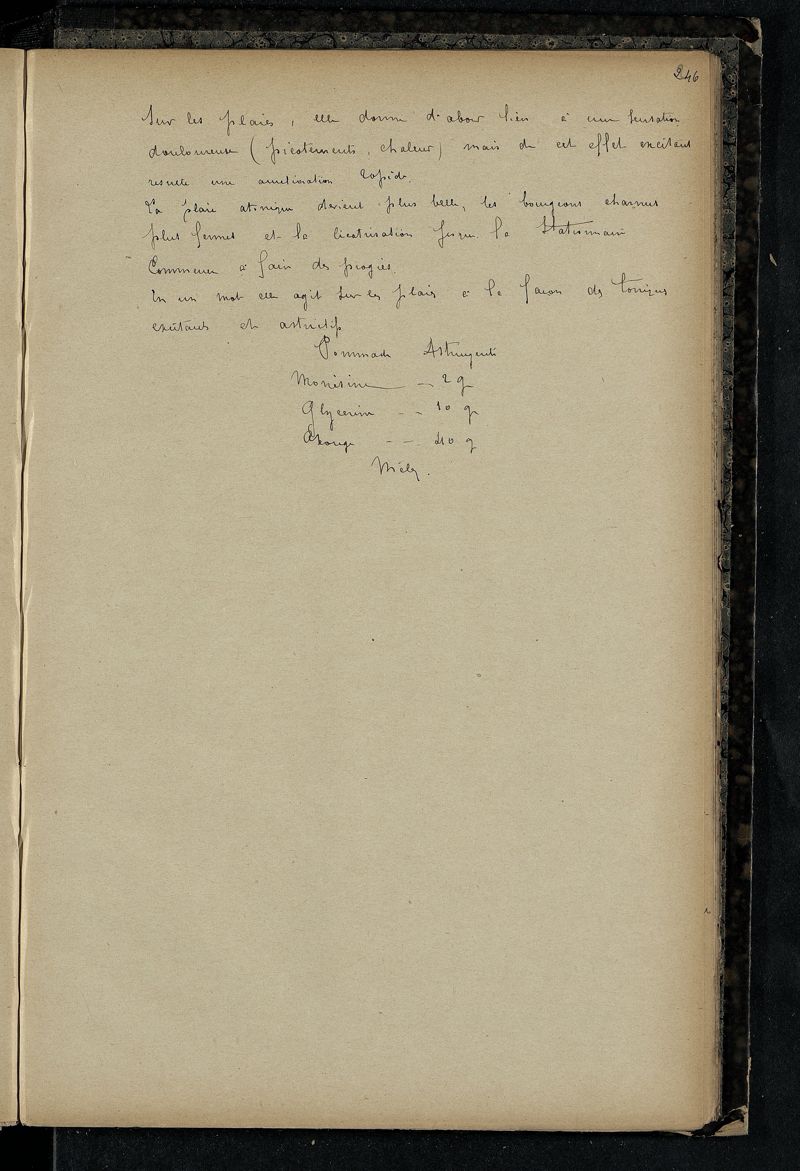 246
Sur les plaies, elle donne d'abor lieu à une sensation
douloureuse (picotements, chaleur) mais de cet effet excitant
resulte une amelioration rapide.
La plaie atonique devient plus belle, les bourgeons charnus
plus fermes et la cicatrisation jusque là stationnaire
Commence à faire des progrès.
En un mot elle agit sur les plaies à la facon des toniques
excitants et astrictifs
Pommade Astringente
Monésine — 2 g
Glycerine - - 10 g
Axonge - - 40 g
Mélez.